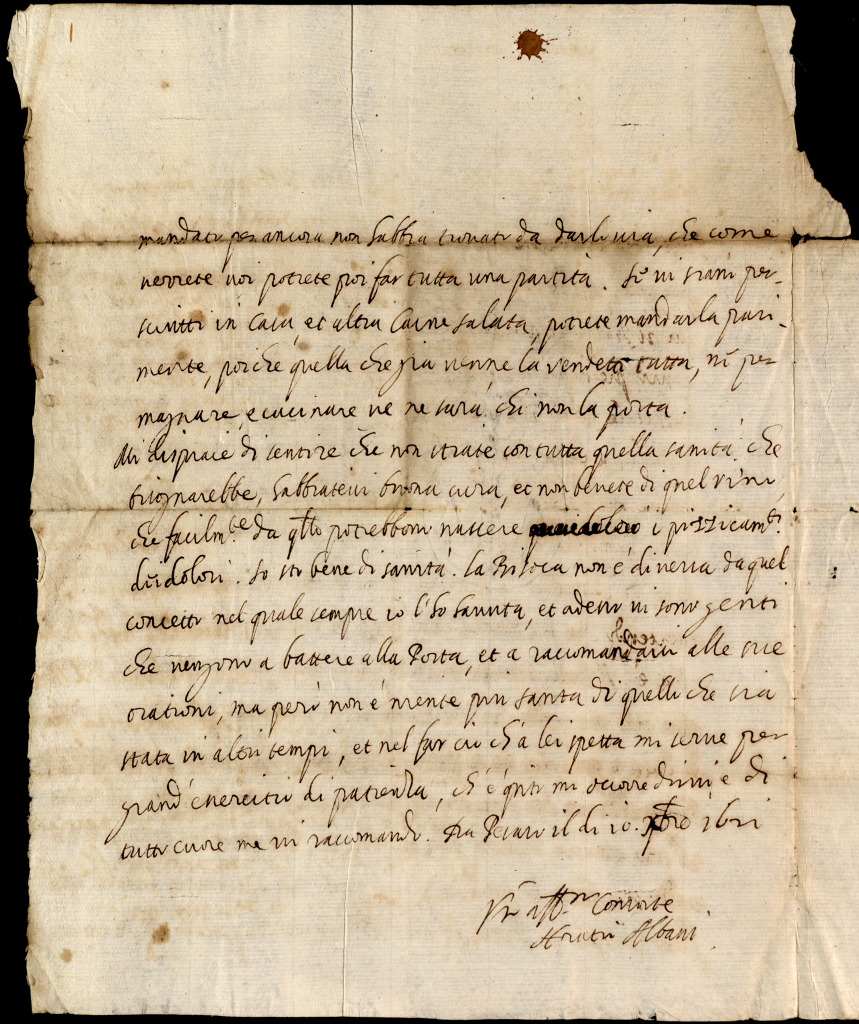 mandato per ancora non habbia trovato da darlo via, che come
verrete voi potrete poi far tutta una partita. Se vi siani per-
sciutti in casa, et altra Carne salata, potrete mandarla pari-
mente, poiche quella che già venne la vendetti tutta, ni per
magnare, e cucinare ve ne sarà chi non la porta.
Mi dispiace di sentire che non stiate con tutta quella sanità che
bisognarebbe, habbiatevi buona cura, et non bevete di quel vino,
che facilm.te da q.llo potrebbono nascere i pizzicam.ti
di dolori. Io sto bene di sanità. La Bisoca non é diversa da quel
concetto nel quale sempre io l'ho havuta, et adesso vi sono genti
che vengono a battere alla Porta, et a raccomandarsi alle sue
orationi, ma però non é niente piu santa di quello che sia
stata in altri tempi, et nel far ciò ch'a lei spetta mi serve per
grand'exercitio di patienza, ch'é q.nto mi occorre dirvi e di
tutto cuore me vi raccomando. Da Pesaro il di 10. 1621
V.ro aff.mo Consorte
Horatio Albani